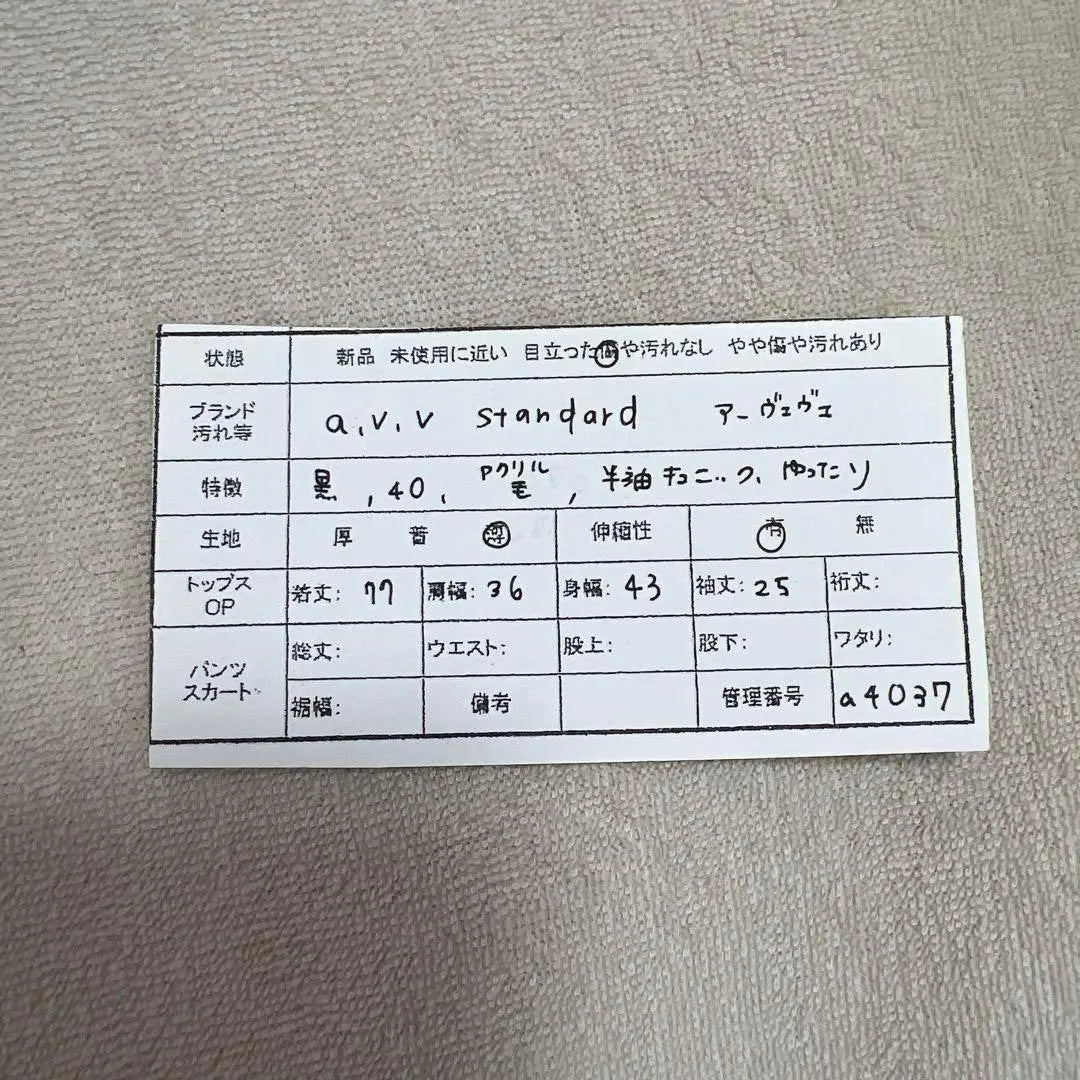 状態 新品 未使用に近い 目立った傷や汚れなし やや傷や汚れあり
ブランド
汚れ等
a.v.v standard アーヴェヴェ
特徴 黒, 40, アクリル 毛, 半袖チュニック、ゆったり
生地 厚 普 薄 伸縮性 有 無
トップス
OP
着丈: 77 肩幅: 36 身幅: 43 袖丈: 25 裄丈:
パンツ
スカート
総丈: ウエスト: 股上: 股下: ワタリ:
裾幅: 備考 管理番号 a4037